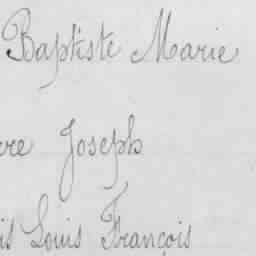 Baptiste Marie
Joseph
Louis François